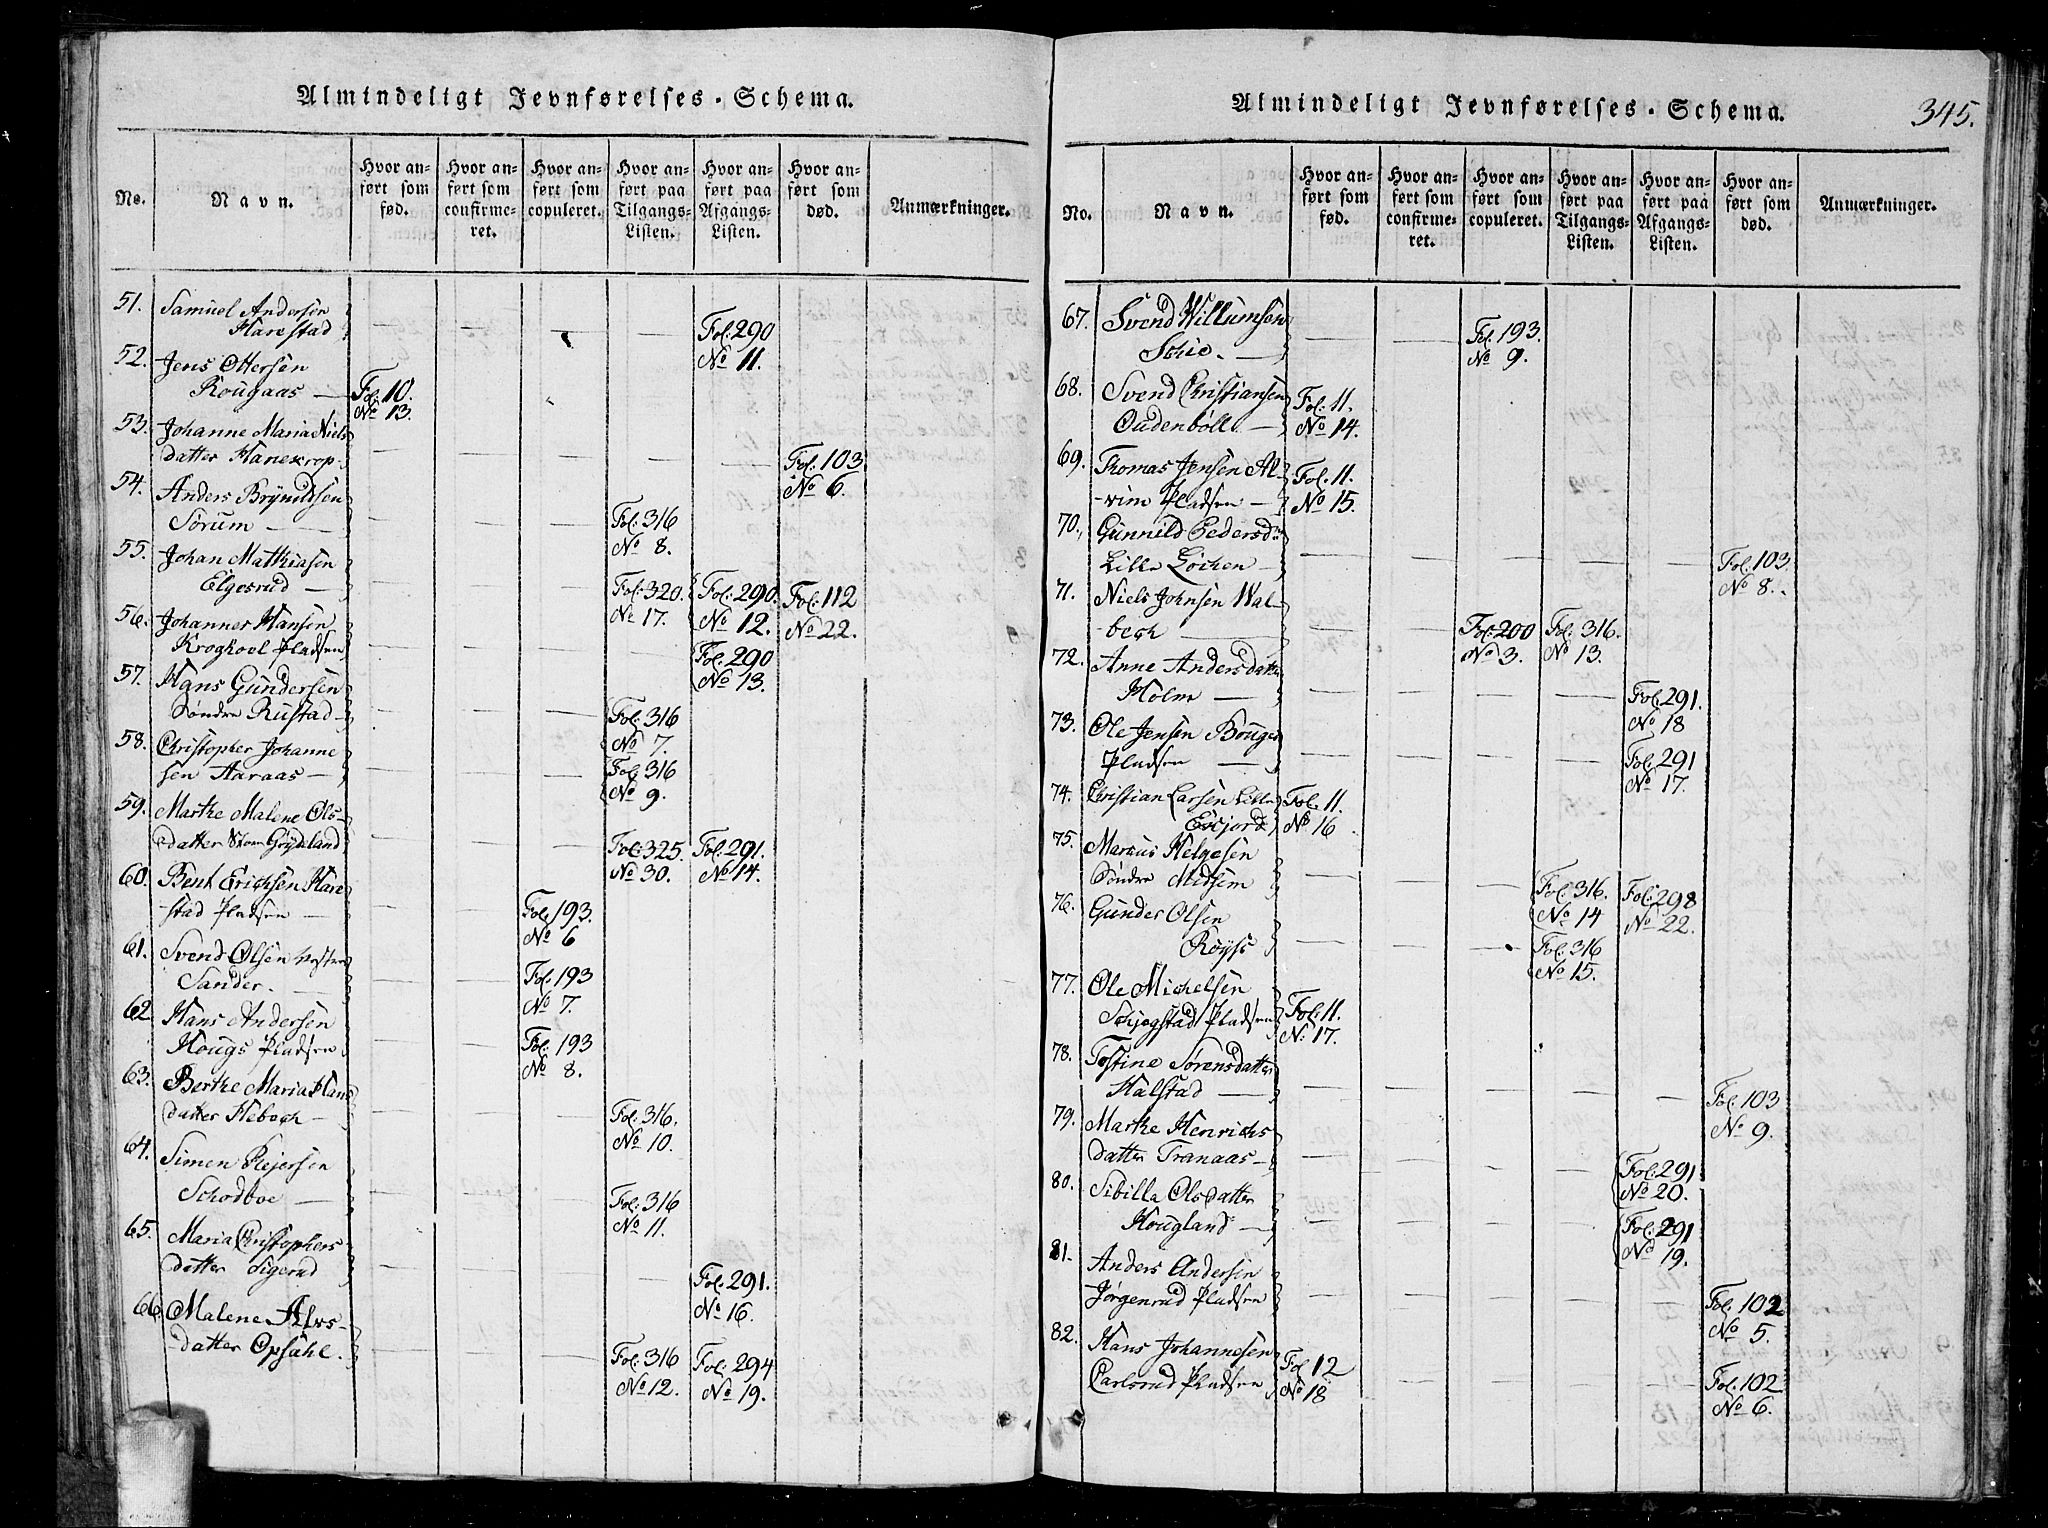 Almindeligt Jevnførelses-Schema.
No.
Navn.
Hvor an-
ført som
fød.
Hvor an-
ført som
confirme-
ret.
Hvor an-
ført som
copuleret.
Hvor an-
ført paa
Tilgangs-
Listen.
Hvor an-
ført paa
Afgangs-
Listen.
Hvor an-
ført som
død.
Anmærkninger.
51. Samuel Andersen
Harestad — — — — Fol: 290
No 11.
52. Jens Ottersen
Kougaas — Fol: 10.
No 13.
53. Johanne Maria Niels
datter Hanekrop — — — — — Fol: 103
No 6.
54. Anders Brynildsen
Sørum — — — — Fol: 316
No 8.
55. Johan Matthiasen
Elgesrud — — — — Fol: 320. Fol: 290. Fol: 112
No 17. No 12. No 22.
56. Johannes Hansen
Kroghoel Pladsen Fol: 290
No 13.
57. Hans Gundersen
Søndre Rustad — — — — Fol: 316
No 7.
58. Christopher Johanne
sen Aaraas — — — — Fol: 316
No 9.
59. Marthe Malene Ols-
datter Store Grydeland — — — Fol: 325. Fol: 291.
No 30. No 14.
60. Bent Erichsen Hare
stad Pladsen — — — Fol: 193.
No 6
61. Svend Olsen Vestre
Sander. — — — Fol: 193
No 7.
62. Hans Andersen
Hougs Pladsen — — Fol: 193
No 8.
63. Berthe Maria Hans
datter Hebech — — — — Fol: 316.
No 10.
64. Simen Rejersen
Schodboe — — — — Fol: 316
No 11.
65. Maria Christophers
datter Sigerud — — — — Fol: 291.
No 16.
66. Malene Alvs-
datter Opsahl. — — — Fol: 316 Fol: 294
No 12. No 19.
Almindeligt Jevnførelses-Schema.
345.
No.
Navn.
Hvor an-
ført som
fød.
Hvor an-
ført som
confirme-
ret.
Hvor an-
ført som
copuleret.
Hvor an-
ført paa
Tilgangs-
Listen.
Hvor an-
ført paa
Afgangs-
Listen.
Hvor an-
ført som
død.
Anmærkninger.
67. Svend Willumsen
Schie. — — — Fol: 193.
No 9.
68. Svend Christiansen Fol: 11.
Oudenböll — No 14.
69. Thomas Jensen Al- Fol: 11.
vim Pladsen — No 15.
70. Gunnild Pedersdr
Lille Løchen — — — — — — Fol: 103
No 8.
71. Niels Johnsen Wal-
bech — — — Fol: 200 Fol: 316.
No 3. No 13.
72. Anne Andersdatter
Holm — — — — — Fol: 291.
No 18
73. Ole Jensen Bouger
Pladsen — — — — — Fol: 291
No 17.
74. Christian Larsen Lille Fol: 11.
Esejord No 16
75. Marcus Helgesen
Søndre Midsem — — — Fol: 316. Fol: 298
No 14 No 22.
76. Gunder Olsen
Røyss — — — Fol: 316
No 15.
77. Ole Michelsen
Schjegstad Pladsen Fol: 11.
N: 17.
78. Tostine Sørensdatter
Halstad — — — — — — Fol: 103
No 9.
79. Marthe Henrichs
datter Tranaas — — — — — Fol: 291
No 20.
80. Sibilla Olsdatter
Hougland — — — — — Fol: 291
No 19.
81. Anders Andersen
Jørgenrud Pladsen — — — — — Fol: 102
No 5.
82. Hans Johannesen
Carlsrud Pladsen Fol 12 — — — — Fol: 102
No 18 No 6.